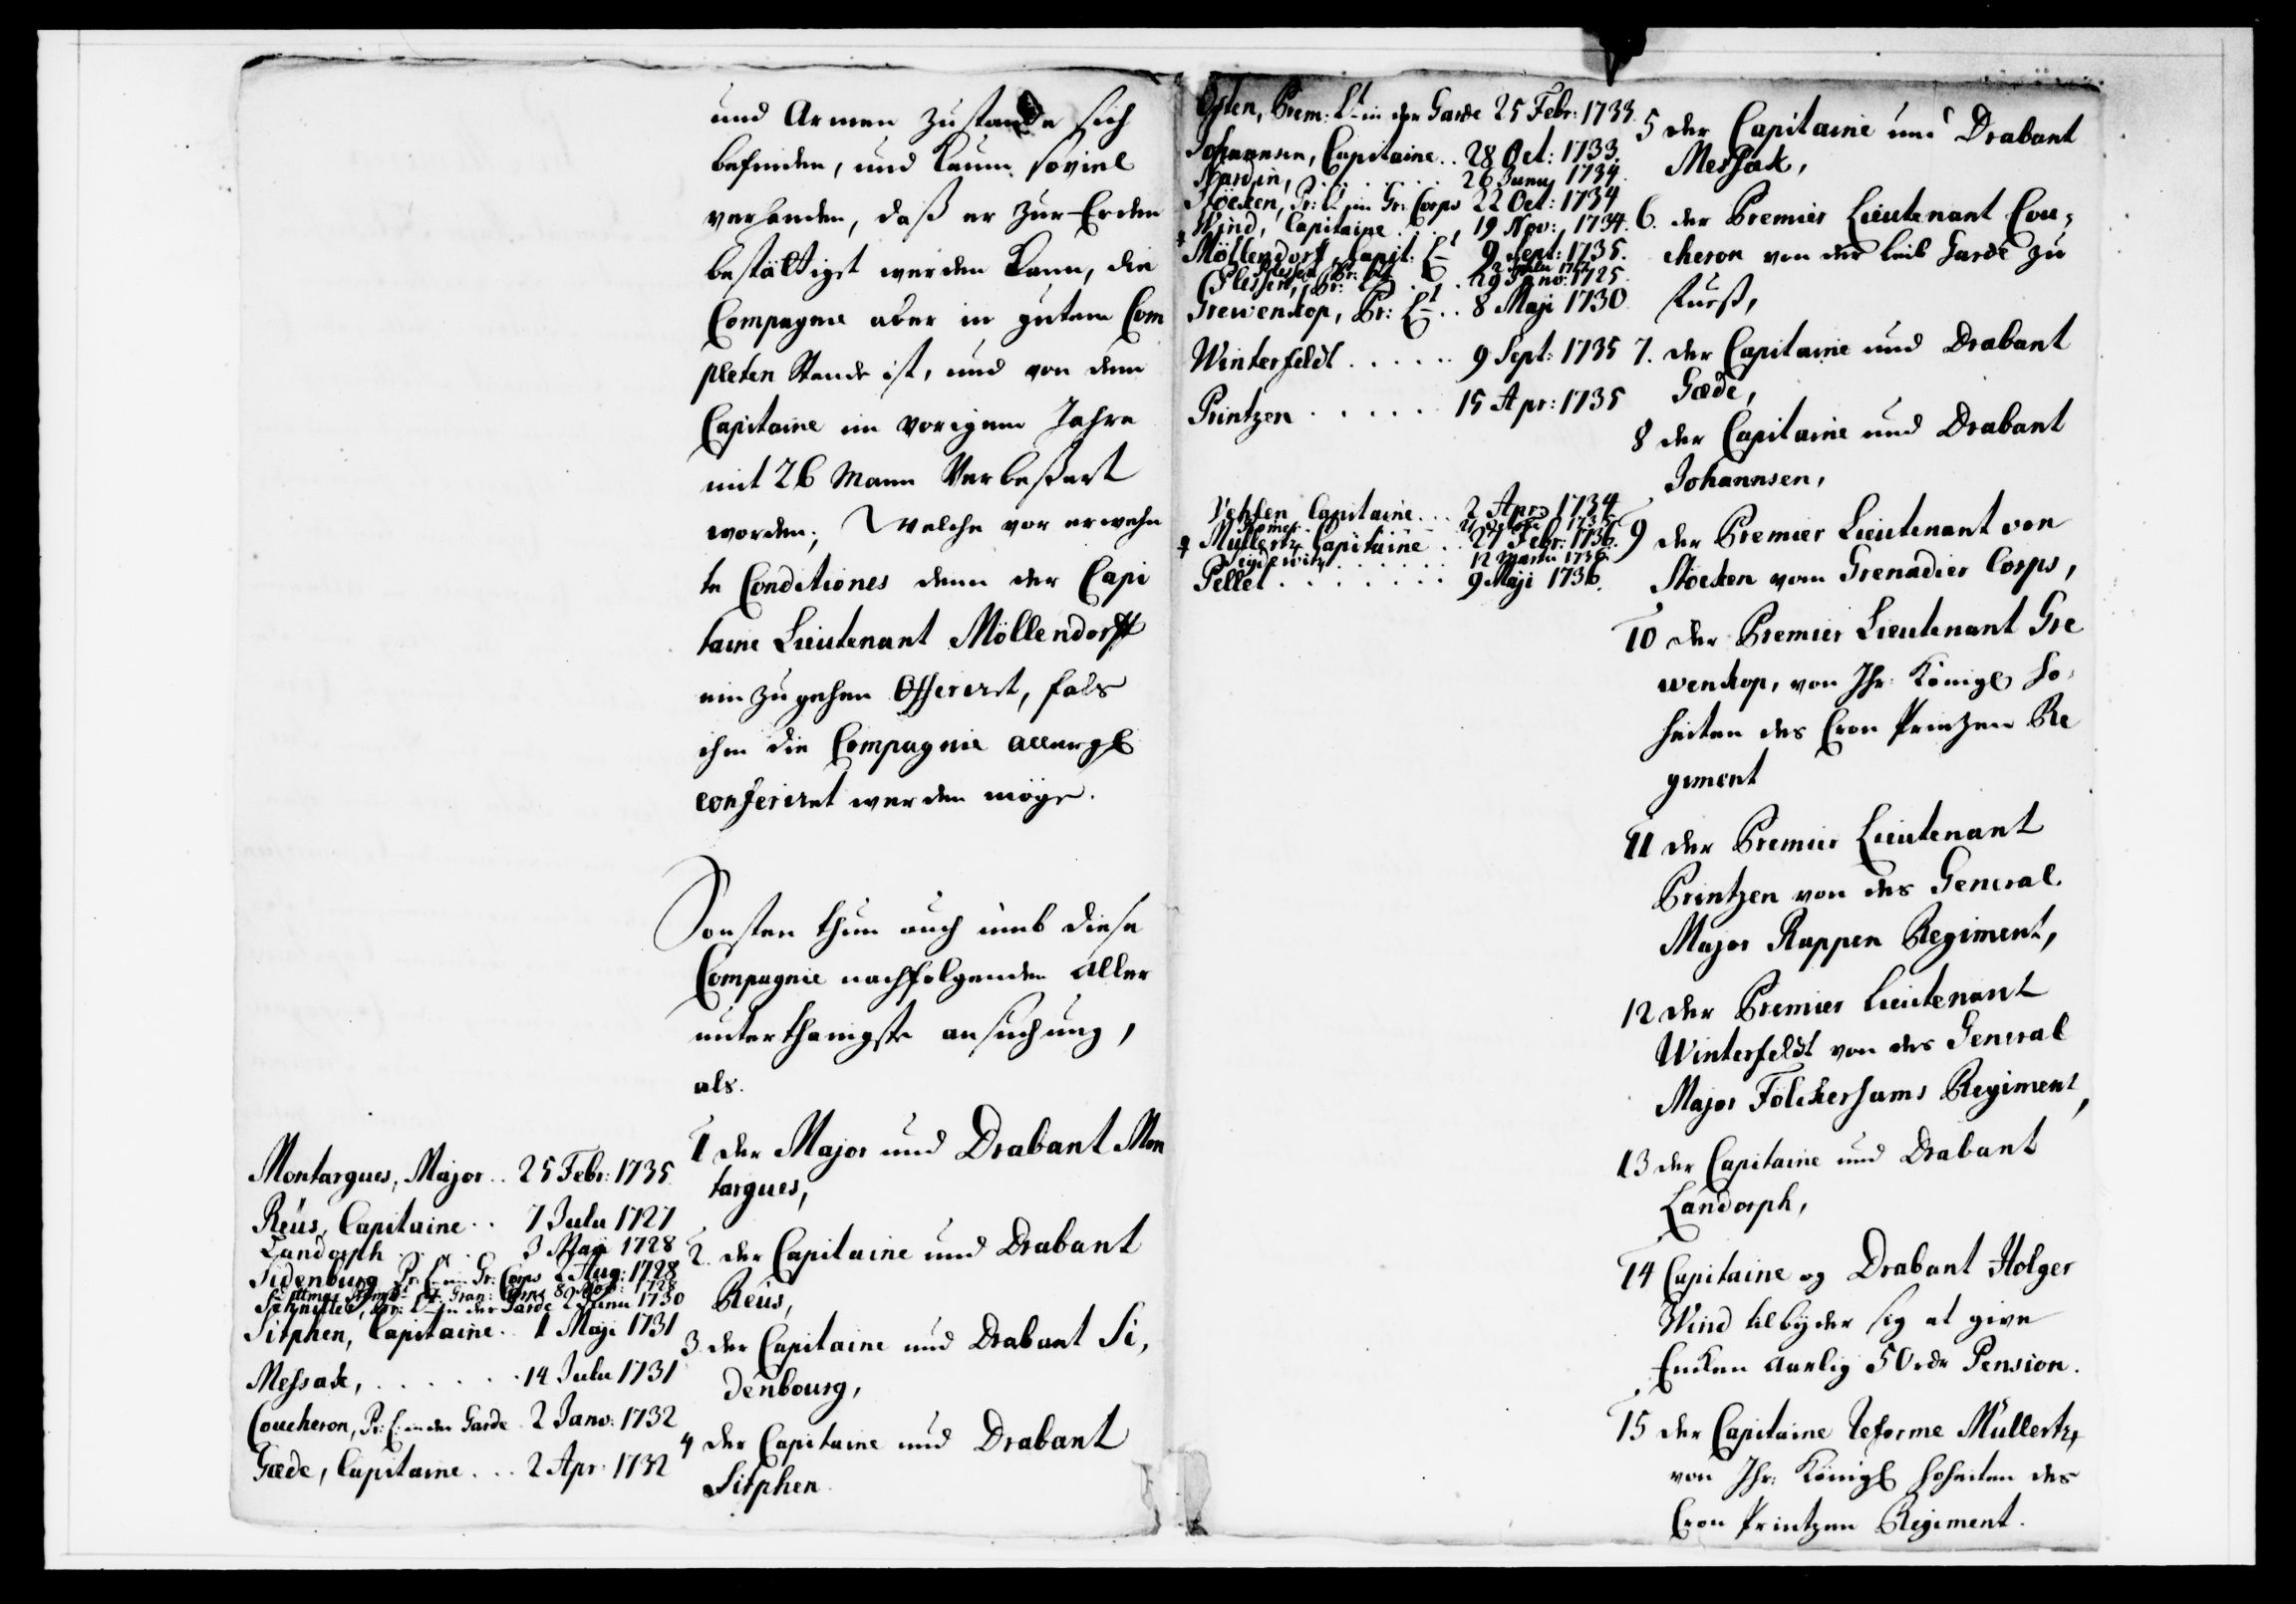 und Armen zustande sich
befinden, und kaum soviel
verhanden, daß er zur Erden
bestättiget werden kann, die
Compagnie aber in gutem Com
pleten Stande ist, und von dem
Capitaine im vorigem Jahre
mit 26 Mann Verbeßert
worden; Welche vor erwehn
te Conditiones denn der Capi
taine Lieutenant Möllendorff
einzugehen Offeriret, fals
ihm die Compagnie allergl
conferiret werden möge.
Sonsten thun auch umb diese
Compagnie nachfolgenden aller
unterthänigste ansuchung,
als.
1 der Major und Drabant Mon
targues,
2. der Capitaine und Drabant
Reüs,
3 der Capitaine und Drabant Si,
denbourg,
4 der Capitaine und Drabant
Sitphen.
Montargues, Major .. 25 Febr: 1735
Reüs, Capitaine .. 7 Julii 1727
Landorph . . . 3 Maji 1728
Sidenburg Pr: Lt im Gr: Corps 2 Aug: 1728
Schnitler, Pr: Lt in der Garde 2 Junii 1730
Sitphen, Capitaine .. 1 Maji 1731
Messak, . . . . . . 14 Julii 1731
Coucheron, Pr: L: in der Garde 2 Janv: 1732
Gæde, Capitaine . . . 2 Apr: 1732
Osten, Prem: Lt in der Garde 25 Febr: 1733.
Johannsen, Capitaine .. 28 Oct: 1733.
Nardin, . . . . . . 26 Junij 1734.
Stöcken, Pr: Lt im Gr: Corps 22 Oct: 1734
Wind, Capitaine . . . , 19 Nov: 1734.
Möllendorf, Capit: Lt 9 Sept: 1735.
Plessen, Pr: Lt . . . 29 Janv: 1725
Grewenkop, Pr: Lt .. 8 Maji 1730
Winterfeldt . . . . . 9 Sept: 1735
Printzen . . . . . 15 Apr: 1735
Capitaine . . . 2 Apr: 1734
Müllertz Capitaine . . 27 Febr: 1736.
12 Martii 1736
Pellet . . . . . . . 9 Maji 1736.
5 der Capitaine und Drabant
Messak,
6. der Premier Lieutenant Cou,
cheron von der Leib Garde zu
Fueß,
7. der Capitaine und Drabant
Gæde,
8 der Capitaine und Drabant
Johannsen,
9 der Premier Lieutenant von
Stöcken vom Grenadier Corps,
10 der Premier Lieutenant Gre
wenkop, von Ihr: Königl Ho,
heiten des Cron Printzen Re
giment
11 der Premier Lieutenant
Printzen von des General
Major Rappen Regiment,
12 der Premier Lieutenant
Winterfeldt von des General
Major Fölckersams Regiment,
13 der Capitaine und Drabant
Landorph,
14 Capitaine og Drabant Holger
Wind tilbyder sig at give
Enken aarlig 50 rdr Pension.
15 der Capitaine Reforme Müllertz
von Ihr: Königl Hoheiten des
Cron Printzen Regiment.